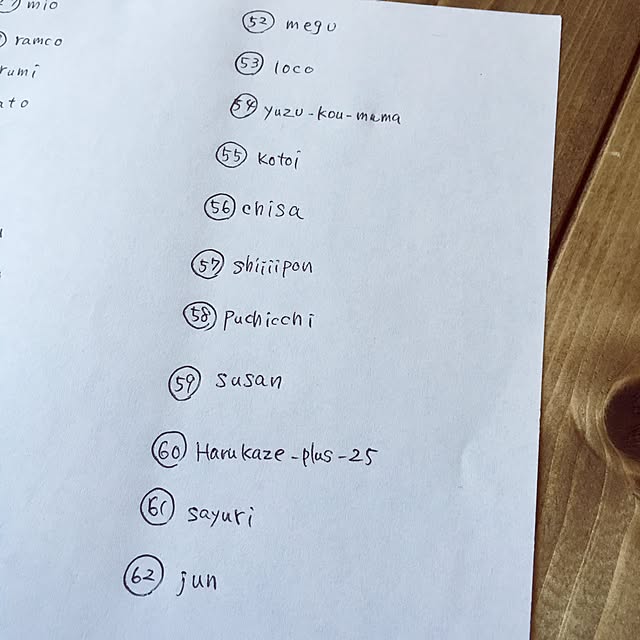 mio
ramco
rumi
ato
52 megu
53 loco
54 yuzu-kou-mama
55 kotoi
56 chisa
57 shiiiipon
58 puchicchi
59 susan
60 Harukaze-plus-25
61 sayuri
62 jun